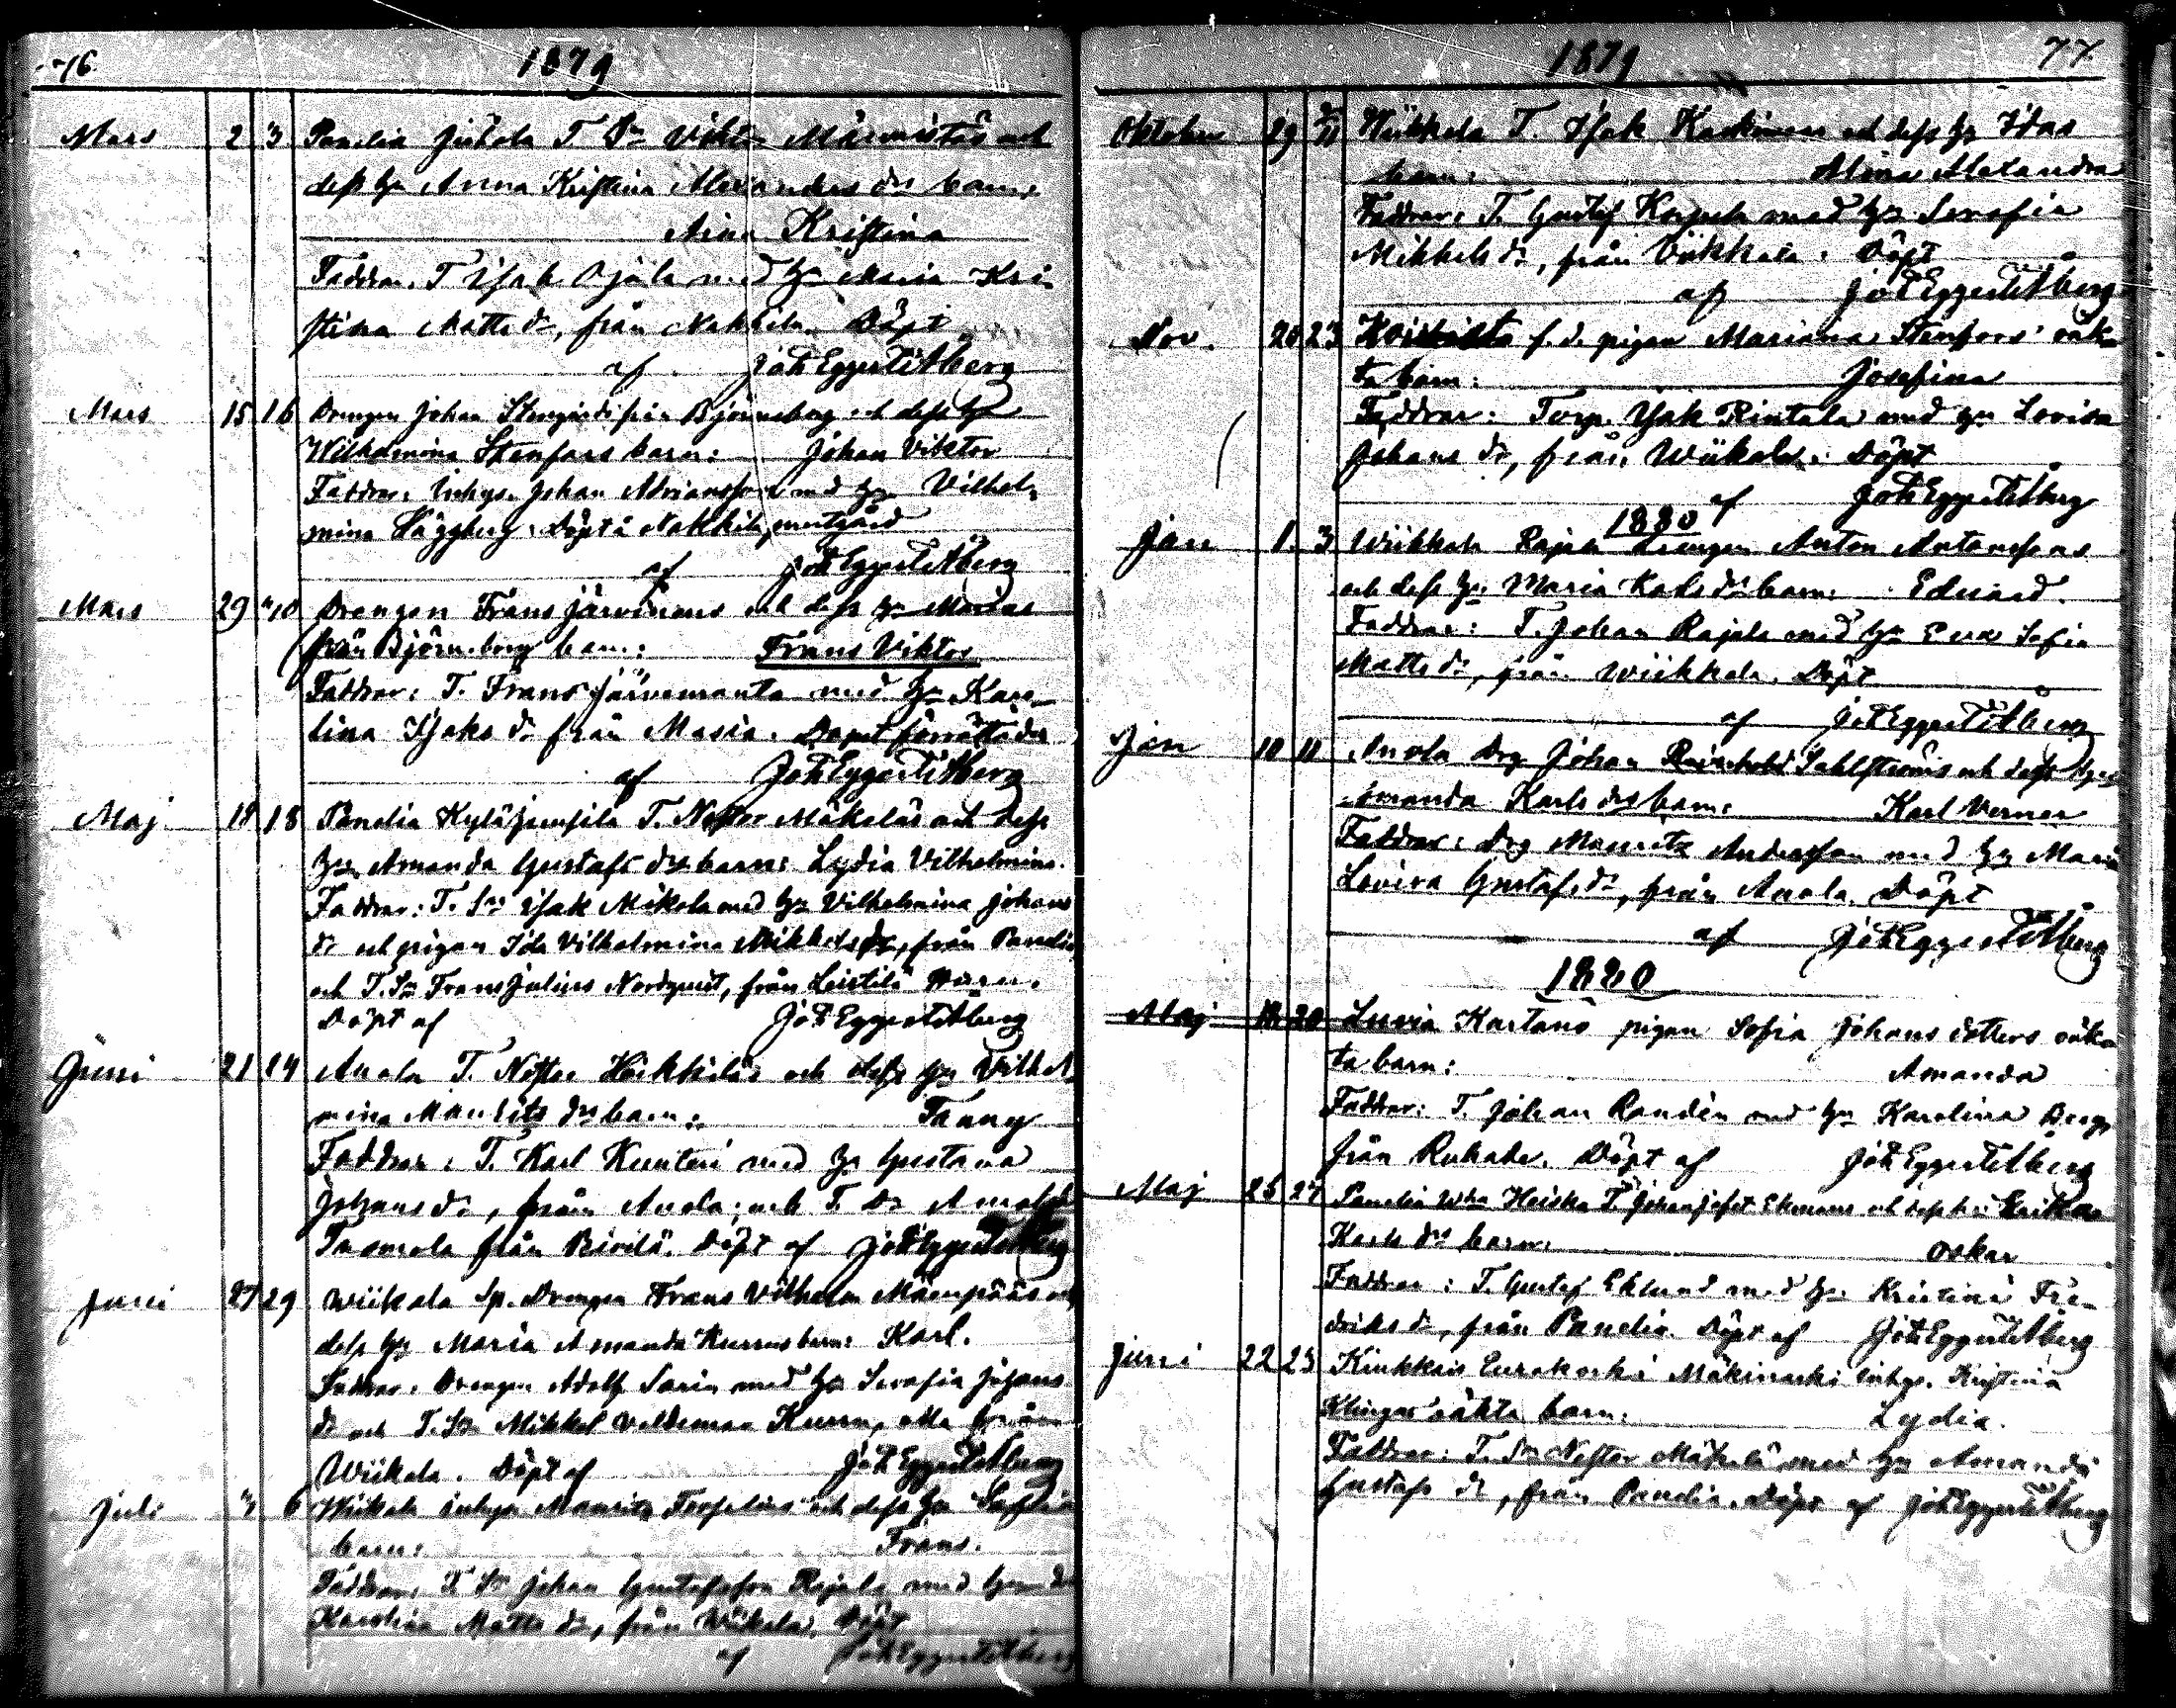 76
1879
Mars 2 3 Panelia T. Sn Viktor och
dess hu Anna Kristina Alexanders drs barn,
Aina Kristina
Faddrar. T Isak Ojala med hu Maria Kri-
stina Matts dr, från Nakkila. Döpt
af Joh Eggert Åberg
Mars 15 16 Drengen Johan från Björneborg och dess hu
Wilhelmina Stenfors barn: Johan Viktor
Faddrar: Inhys. Johan Adriansson med hu Vilhel-
mina Häggberg. Döpt i Nakkila prestgård
af Joh Eggert Åberg
Mars 29 Drengen Frans Järvinens och dess hu Marias
från Björneborg barn: Frans Viktor
Faddrar: T. Frans med hu Karo-
lina Isaks dr från Masia. Dopet förrättades
af Joh Eggert Åberg
Maj 18 Panelia T. Nestor Mäkeläs och dess
hu Amanda Gustafs drs barn: Lydia Vilhelmina.
Faddrar: T. Sn Isak Mikola med hu Vilhelmina Johans
dr och pigan Ida Vilhelmina Mikkels dr, från Panelia
och T. Sn Frans Julius Nordqvist, från Leistilä
Döpt af Joh Eggert Åberg
Juni 21 Anola T. Nestor Heikkiläs och dess hu Vilhel-
mina Maurits drs barn: Fanny
Faddrar: T. Karl med hu Gustava
Johans dr, från Anola; och T. Dr
från Döpt af Joh Eggert Åberg
Juni 27 29 Wiikala Sp. Drengen Frans Vilhelm Mäenpääs och
dess hu Maria Amanda barn: Karl.
Faddrar: Drengen Adolf Sarin med hu Serafia Johans
dr och T. Sn Mikkel Valdemar alla från
Wiikala. Döpt af Joh Eggert Åberg
Juli 6 Wiikala inhys. Maurits och dess hu Sofias
barn: Frans.
Faddrar: T. Sn Johan Gustafsson Rajala med
Karolina Matts dr, från Wiikala. Döpt
af Joh Eggert Åberg
1879
77.
Oktober 29 2/11 Wiikkala T. Isak Koskinens och dess hu Idas
barn: Alina Alexandra
Faddrar: T. Gustaf med hu Serafia
Mikkels dr, från Viikkala: Döpt
af Joh Eggert Åberg
Nov. 20 23 Koivisto f. d. pigan Mariana Stenfors' oäk-
ta barn: Josefina
Faddrar: Torp. Isak Rintala med hu Lovisa
Johans dr, från Wiikala: Döpt
af Joh Eggert Åberg
1880
Jan 1. 3 Wiikkala Rajala drengen Anton Antonssons
och dess hu Maria Karls drs barn: Eduard.
Faddrar: T. Johan Rajala med hu Eva Sofia
Matts dr, från Wiikkala. Döpt
af Joh Eggert Åberg
Jan 10 11 Anola Drg Johan Reinhold Sahlströms och dess hu
Amanda Karls drs barn: Karl Verner
Faddrar: Drg Mauritz Andersson med hu Maria
Lovisa Gustafs dr, från Anola. Döpt
af Joh Eggert Åberg
1880
Maj 20 Luvia Kartano pigan Sofia Johans dotters oäk-
ta barn: Amanda
Faddrar: T. Johan Randén med hu Karolina
från Döpt af Joh Eggert Åberg
Maj 25 27 Panelia Heiska T. Johan Josef Ekmans och dess hu Erika
Karls drs barn: Oskar
Faddrar: T. Gustaf Eklund med hu Kristina Fre-
driks dr, från Panelia. Döpt af Joh Eggert Åberg
Juni 22 23 Kiukkais Eurakoski inhys. Kristina
oäkta barn: Lydia.
Faddrar: T. Sn Nestor Mäkelä med hu Amanda
Gustafs dr, från Panelia. Döpt af Joh Eggert Åberg